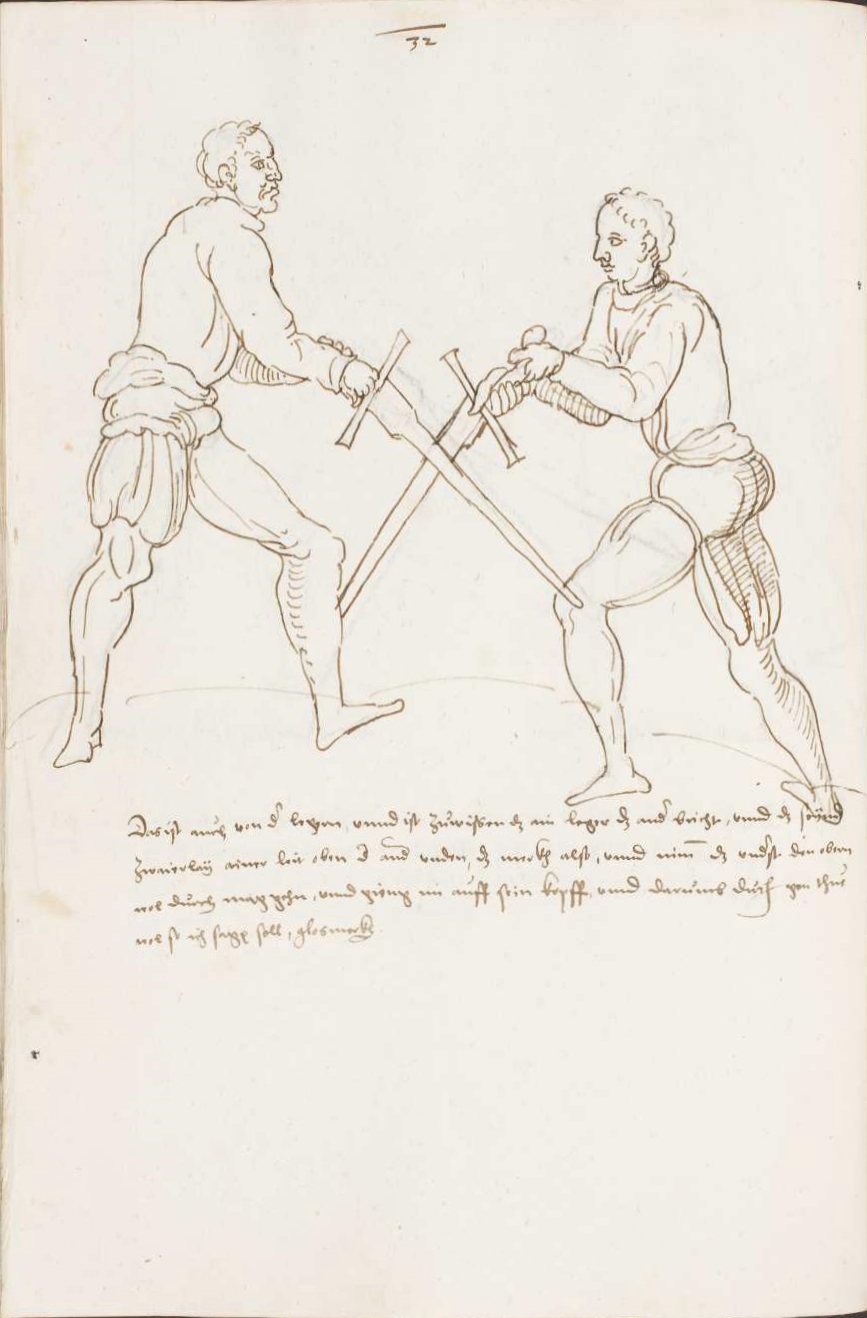 32
Das ist auch von d' legern, vnnd ist zuwissen dz ain leger dz and' bricht, vnnd dz seynd
Zwaierlaÿ ainer leit oben d' and' vnden, dz merkh also, vnnd nim̄ dz vnd'st den obern
wol durch mag gehn, vnnd im auff sein kopff, vnnd darumb durch gen
wol so ich sagen soll, glosmerkh